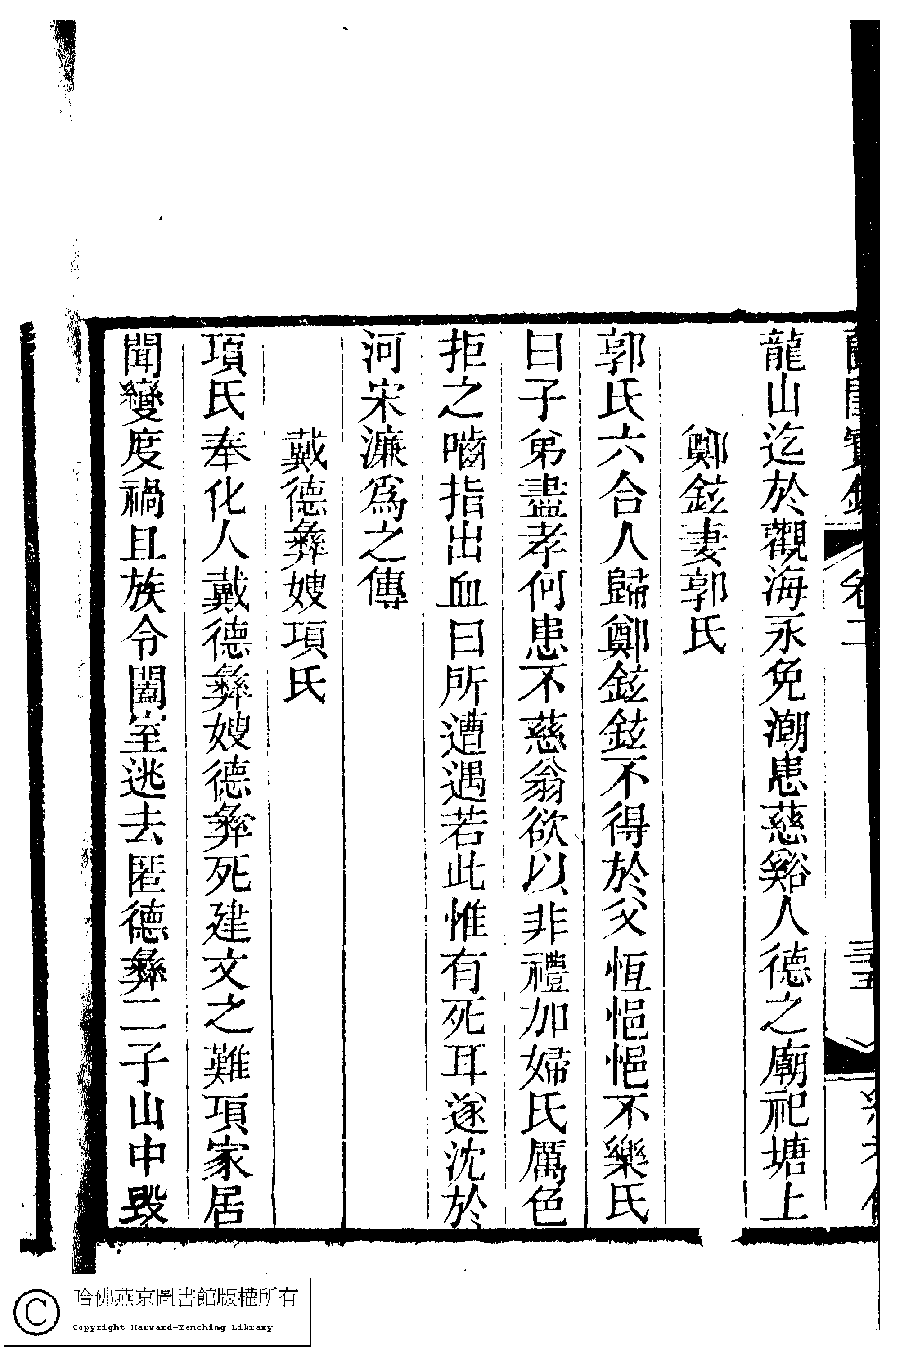 龍山迄於觀海永免潮患慈谿人德之廟祀塘上
鄭鉉妻郭氏
郭氏六合人歸鄭鉉鉉不得於父恆悒悒不樂氏
曰子弟盡孝何患不慈翁欲以非禮加婦氏厲色
拒之嚙指出血曰所遭遇若此惟有死耳遂沈於
河宋濂爲之傳
戴德彝嫂項氏
項氏奉化人戴德彝嫂德彝死建文之難項家居
聞變度禍且族令闔室逃去匿德彝二子山中毀
哈佛燕京圖書館版權所有
Copyright Harvard-Yenching Library